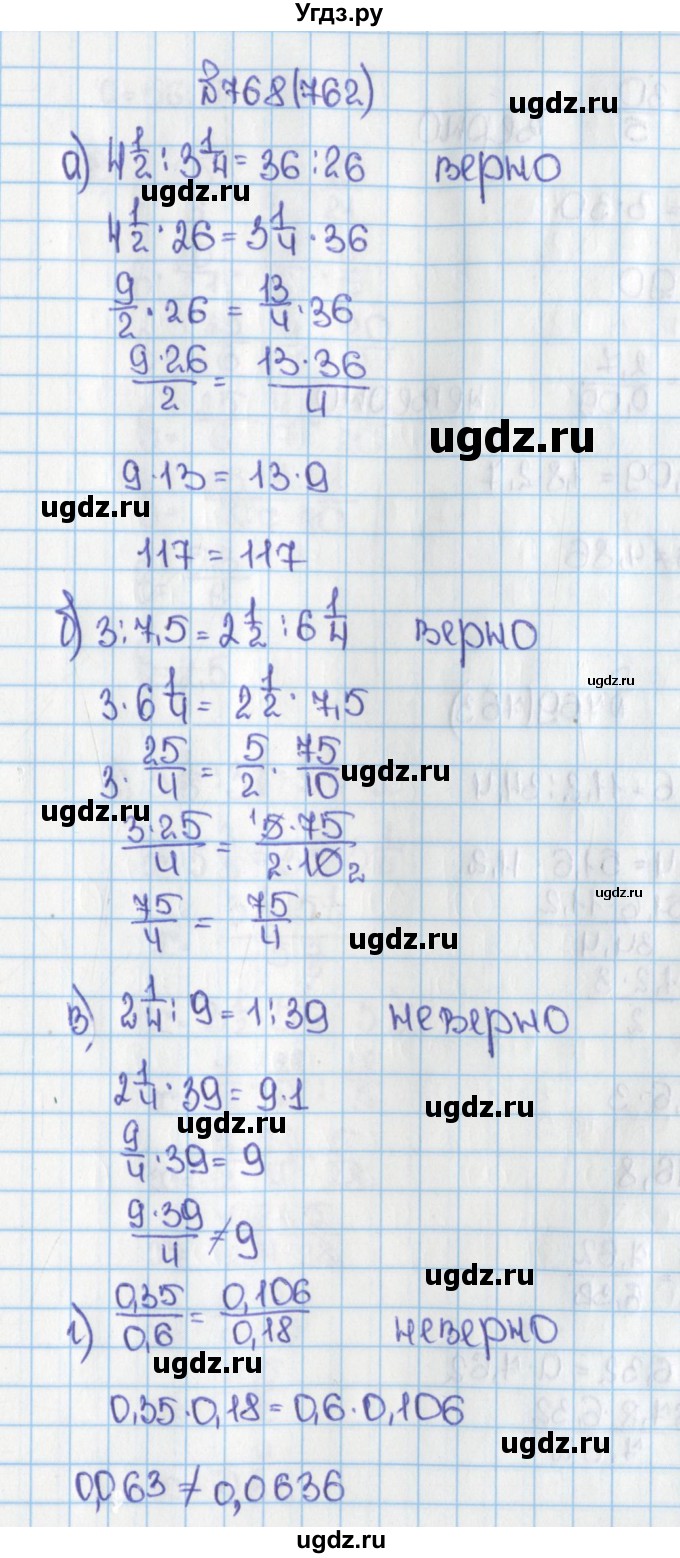 Угдз.ру
№768(762)
ugdz.ru
а) 4 1/2 : 3 1/4 = 36 : 26 верно
ugdz.ru
4 1/2 · 26 = 3 1/4 · 36
9/2 · 26 = 13/4 · 36
9·26/2 = 13·36/4
ugdz.ru
9·13 = 13·9
ugdz.ru
117 = 117
б) 3 : 7,5 = 2 1/2 : 6 1/4 верно
ugdz.ru
3 · 6 1/4 = 2 1/2 · 7,5
3 · 25/4 = 5/2 · 75/10
ugdz.ru
ugdz.ru
3·25/4 = ¹5·75/2·10₂
ugdz.ru
75/4 = 75/4
ugdz.ru
в) 2 1/4 : 9 = 1 : 39 неверно
2 1/4 · 39 = 9·1
ugdz.ru
ugdz.ru
9/4 · 39 = 9
9·39/4 ≠ 9
ugdz.ru
г) 0,35/0,6 = 0,106/0,18 неверно
ugdz.ru
0,35·0,18 = 0,6·0,106
ugdz.ru
0,063 ≠ 0,0636
ugdz.ru